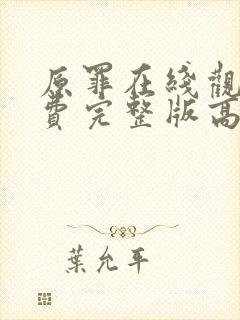 原罪在綫觀
費完整版高
葉允平